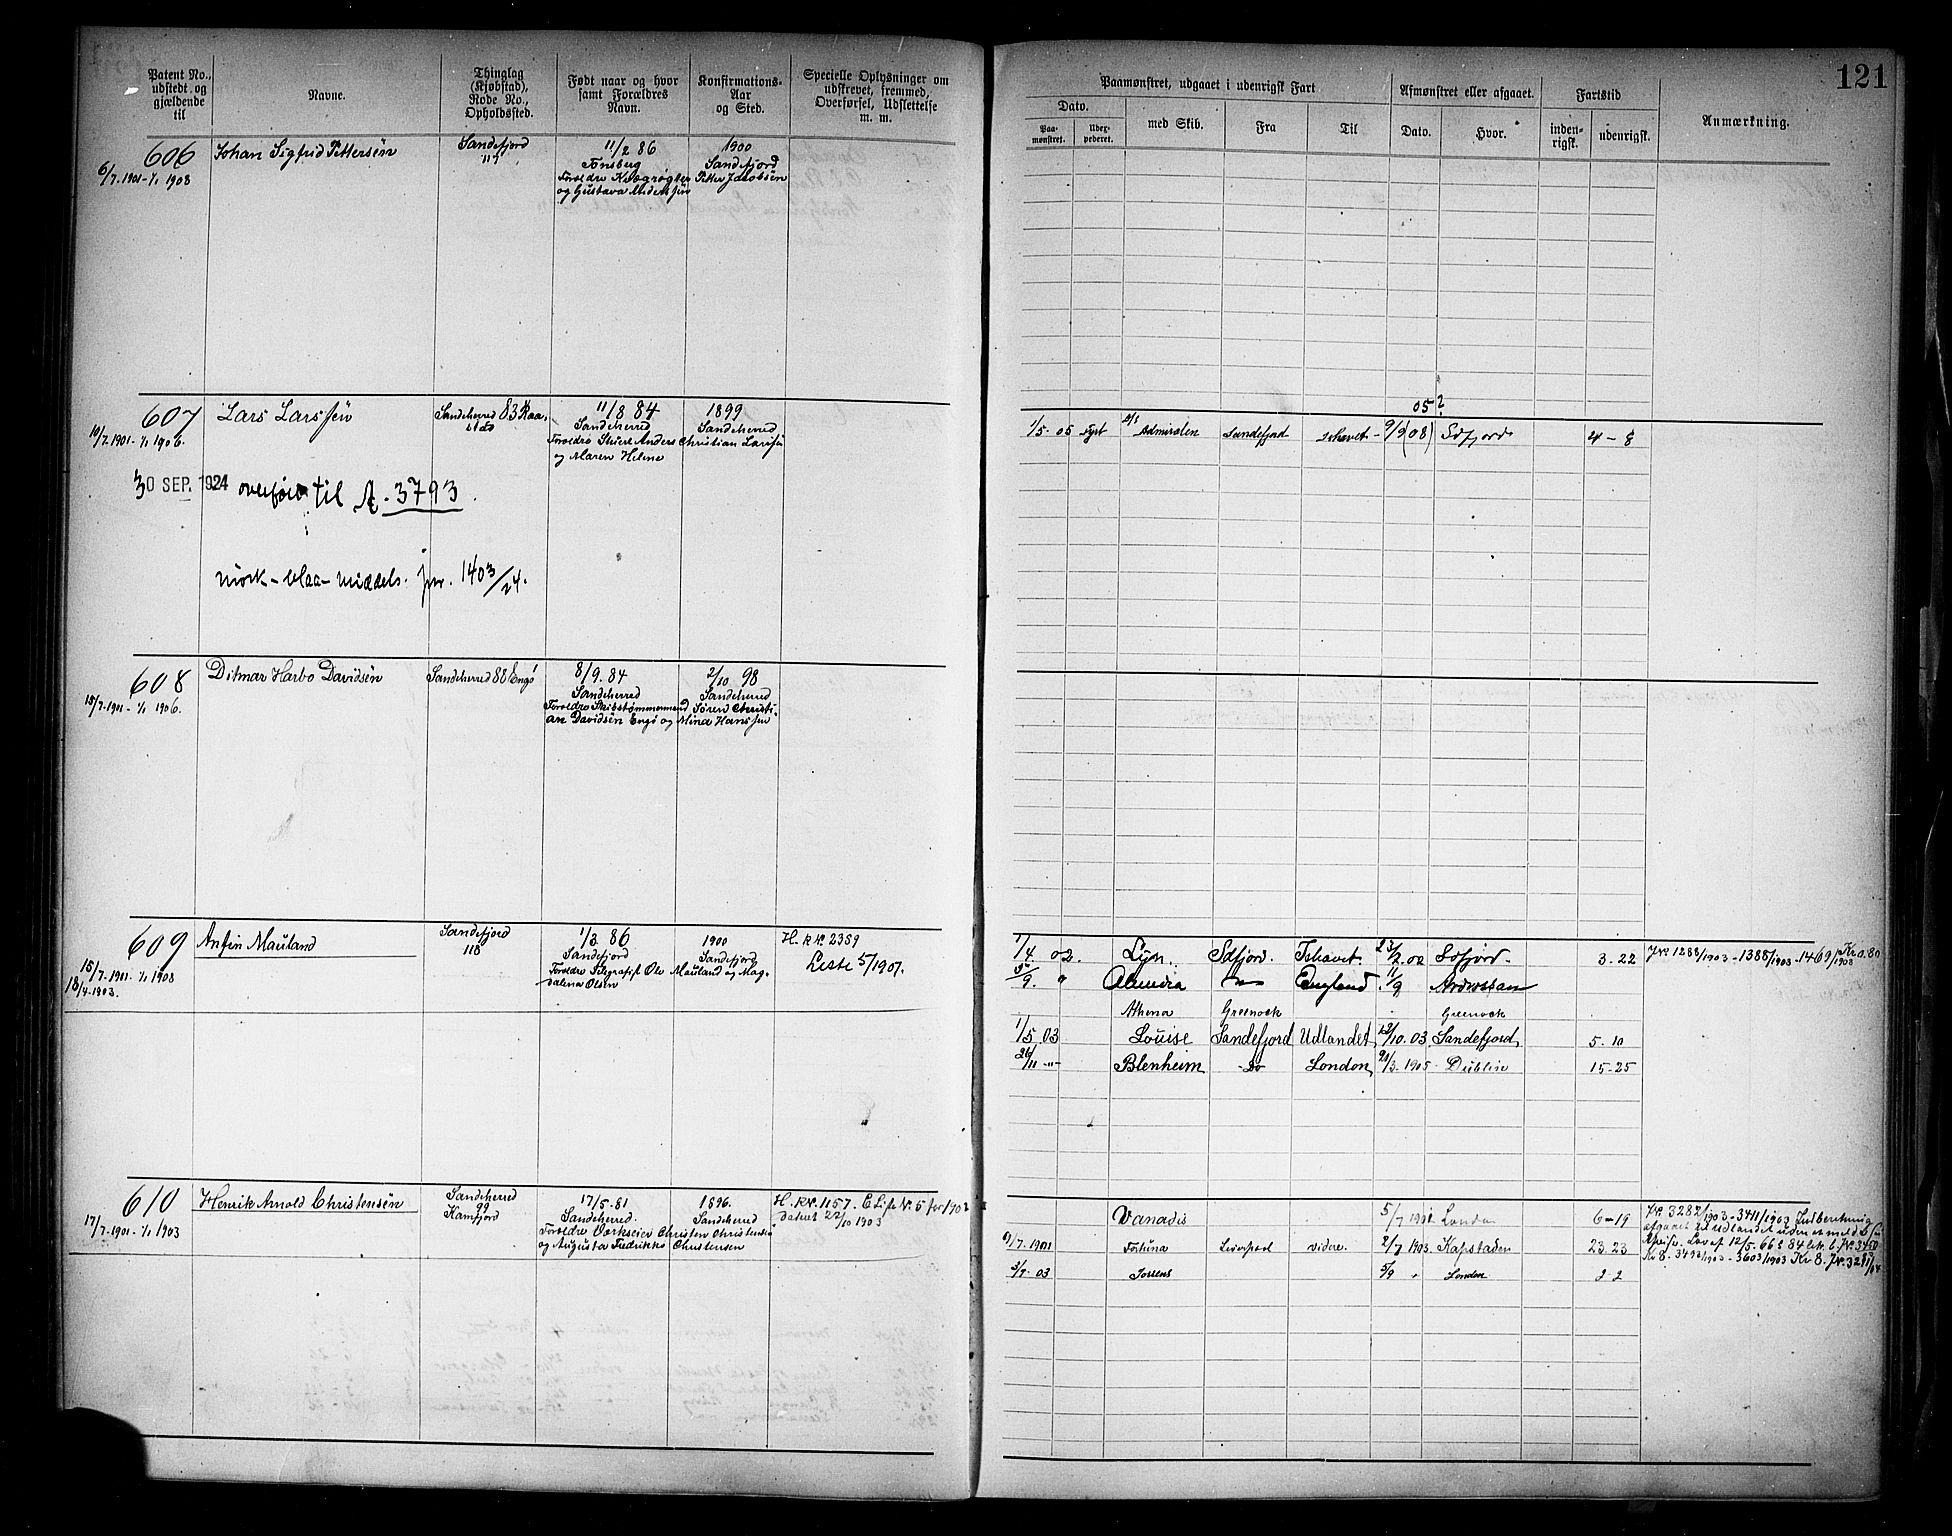 121
Patent No., udstedt og gjældende til
Navne.
Thinglag (Kjøbstad), Rode No., Opholdssted.
Født naar og hvor samt Forældres Navn.
Konfirmations-Aar og Sted.
Specielle Oplysninger om udskrevet, fremmed, Overførsel, Udslettelse m. m.
Paamønstret, udgaaet i udenrigsk Fart
Dato.
Paa-mønstret.
Uder-pederet.
med Skib.
Fra
Til
Afmønstret eller afgaaet.
Dato.
Hvor.
Fartstid
inden-rigsk.
udenrigsk.
Anmærkning.
606
6/7.1901-1/1 1908
Johan Sigfrid Pettersen
Sandefjord
117
11/2 86
Tønsberg
Foreldre Kvægrøgter Petter Jacobsen
og Gustava Anderssen
1900
Sandefjord
607
10/7.1901-1/1 1906.
Lars Larssen
Sandeherred 83 Raa-
stad
11/8 84
Sandeherred
Foreldre Skibst Anders Christian Larssen
og Maren Helene
1899
Sandeherred
30 SEP. 1924 overført til A. 3793.
mørk-blaa-middels. jnr. 1403/24.
05?
1/5-05 Admiralen Sandefjord Ishavet 9/9(08) Sdfjord 4-8
608
15/7.1901-1/1 1906.
Ditmar Harbo Davidsen
Sandeherred 88 Engø
8/9.84
Sandeherred
Foreldre Skibstømmermand Søren Christi-
an Davidsen Engø og Mina Hanssen
2/10 98
Sandeherred
609
15/7.1901-1/1 1908
18/4.1903.
Anfin Mauland
Sandefjord
118
1/3.86
Sandefjord
Foreldre Telegrafist Ole Mauland og Mag-
dalena Olsen
1900
Sandefjord
H. R No. 2359
Liste 5/1907.
1/4.02. Lyn. Sdfjord. Ishavet 23/2.02 Sdfjord. 3-22
Jr. 1288/1903-1388/1903-1469/1903 Kr 0.80
5/9. " Almira England. 11/9 Ardrossan
Athena Greenock Greenock
1/5 03 Louise Sandefjord Udlandet 12/10.03 Sandefjord 5-10
26/11 -"- Blenheim Do London 20/3.1905 Dublin 15-25
610
17/7.1901-1/1 1903
Henrik Arnold Christensen
Sandeherred
99
Kamfjord
17/5.81
Sandeherred.
Foreldre Værkseier Christen Christensen
og Augusta Fredrikke Christensen
1896.
Sandeherred
H. R No. 1157. E Liste No. 5 for 1902
datert 22/10 1903
Vanadis 5/7 1901 London 6-19
6/7.1901 Fortuna Liverpool videre. 2/7 1903 Kapstaden 23-23
3/7-03 Torrens 5/9 " London 2-2
Jr. 3282/1903-3411/1903 Indberetning
afgaaet til udlandet uden anmeldelse
Kr 8. 3492/1903-3603/1903 Kr 8. Jr. 3281/04